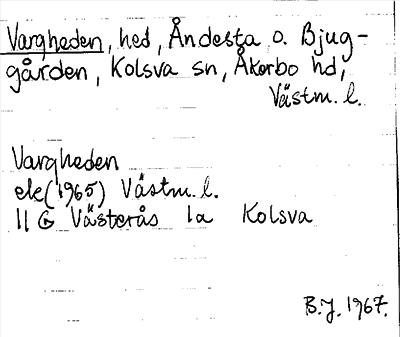 Vargheden, hed, Åndesta o. Bjug-
gården, Kolsva sn, Åkerbo hd,
Västm. l.
Vargheden
ek (1965) Västm. l.
11 G Västerås 1a Kolsva
B.J. 1967.